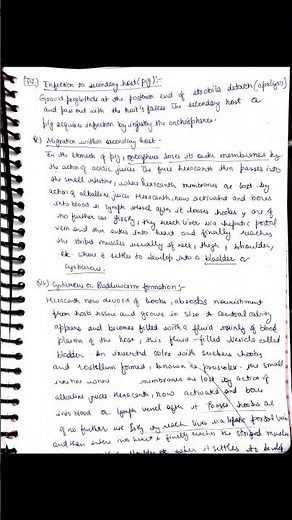 (iv) Infection to secondary host (pig):-
Gravid proglottids at the posterior end of strobila detach (apolysis)
and pass out with the host's faeces. The secondary host or
pig acquires infection by ingesting the onchospheres.
v) Migration within secondary host -
In the stomach of pig, loses its outer membranes by
the action of acidic juices. The free hexacanth then passes into
the small intestine, where hexacanth membranes are lost by
action of alkaline juices. Hexacanth, now activated and bores
into blood or lymph vessel after it looses hooks are of
no further use. firstly, they reach liver via hepatic portal
vein and then enters into heart and finally reaches
the striped muscles usually of neck, thigh, shoulder,
etc where it settles to develop into a bladder or
cysticercus.
vi) Cysticercus or Bladderworm formation:-
Hexacanth now devoid of hooks, absorbs nourishment
from host's tissue and grows in size. A central cavity
appears and becomes filled with a fluid mainly of blood
plasma of the host, this fluid-filled vesicle called
bladder. An inverted scolex with suckers hooks
and rostellum formed, known as proscolex. the small
intestine where membranes are lost by action of
alkaline juices. Hexacanth, now activated and bores
into blood or lymph vessel after it looses hooks are
of no further use. they reach liver via hepatic portal vein
and then enters into heart & finally reaches the striped muscles
where it settles to develop